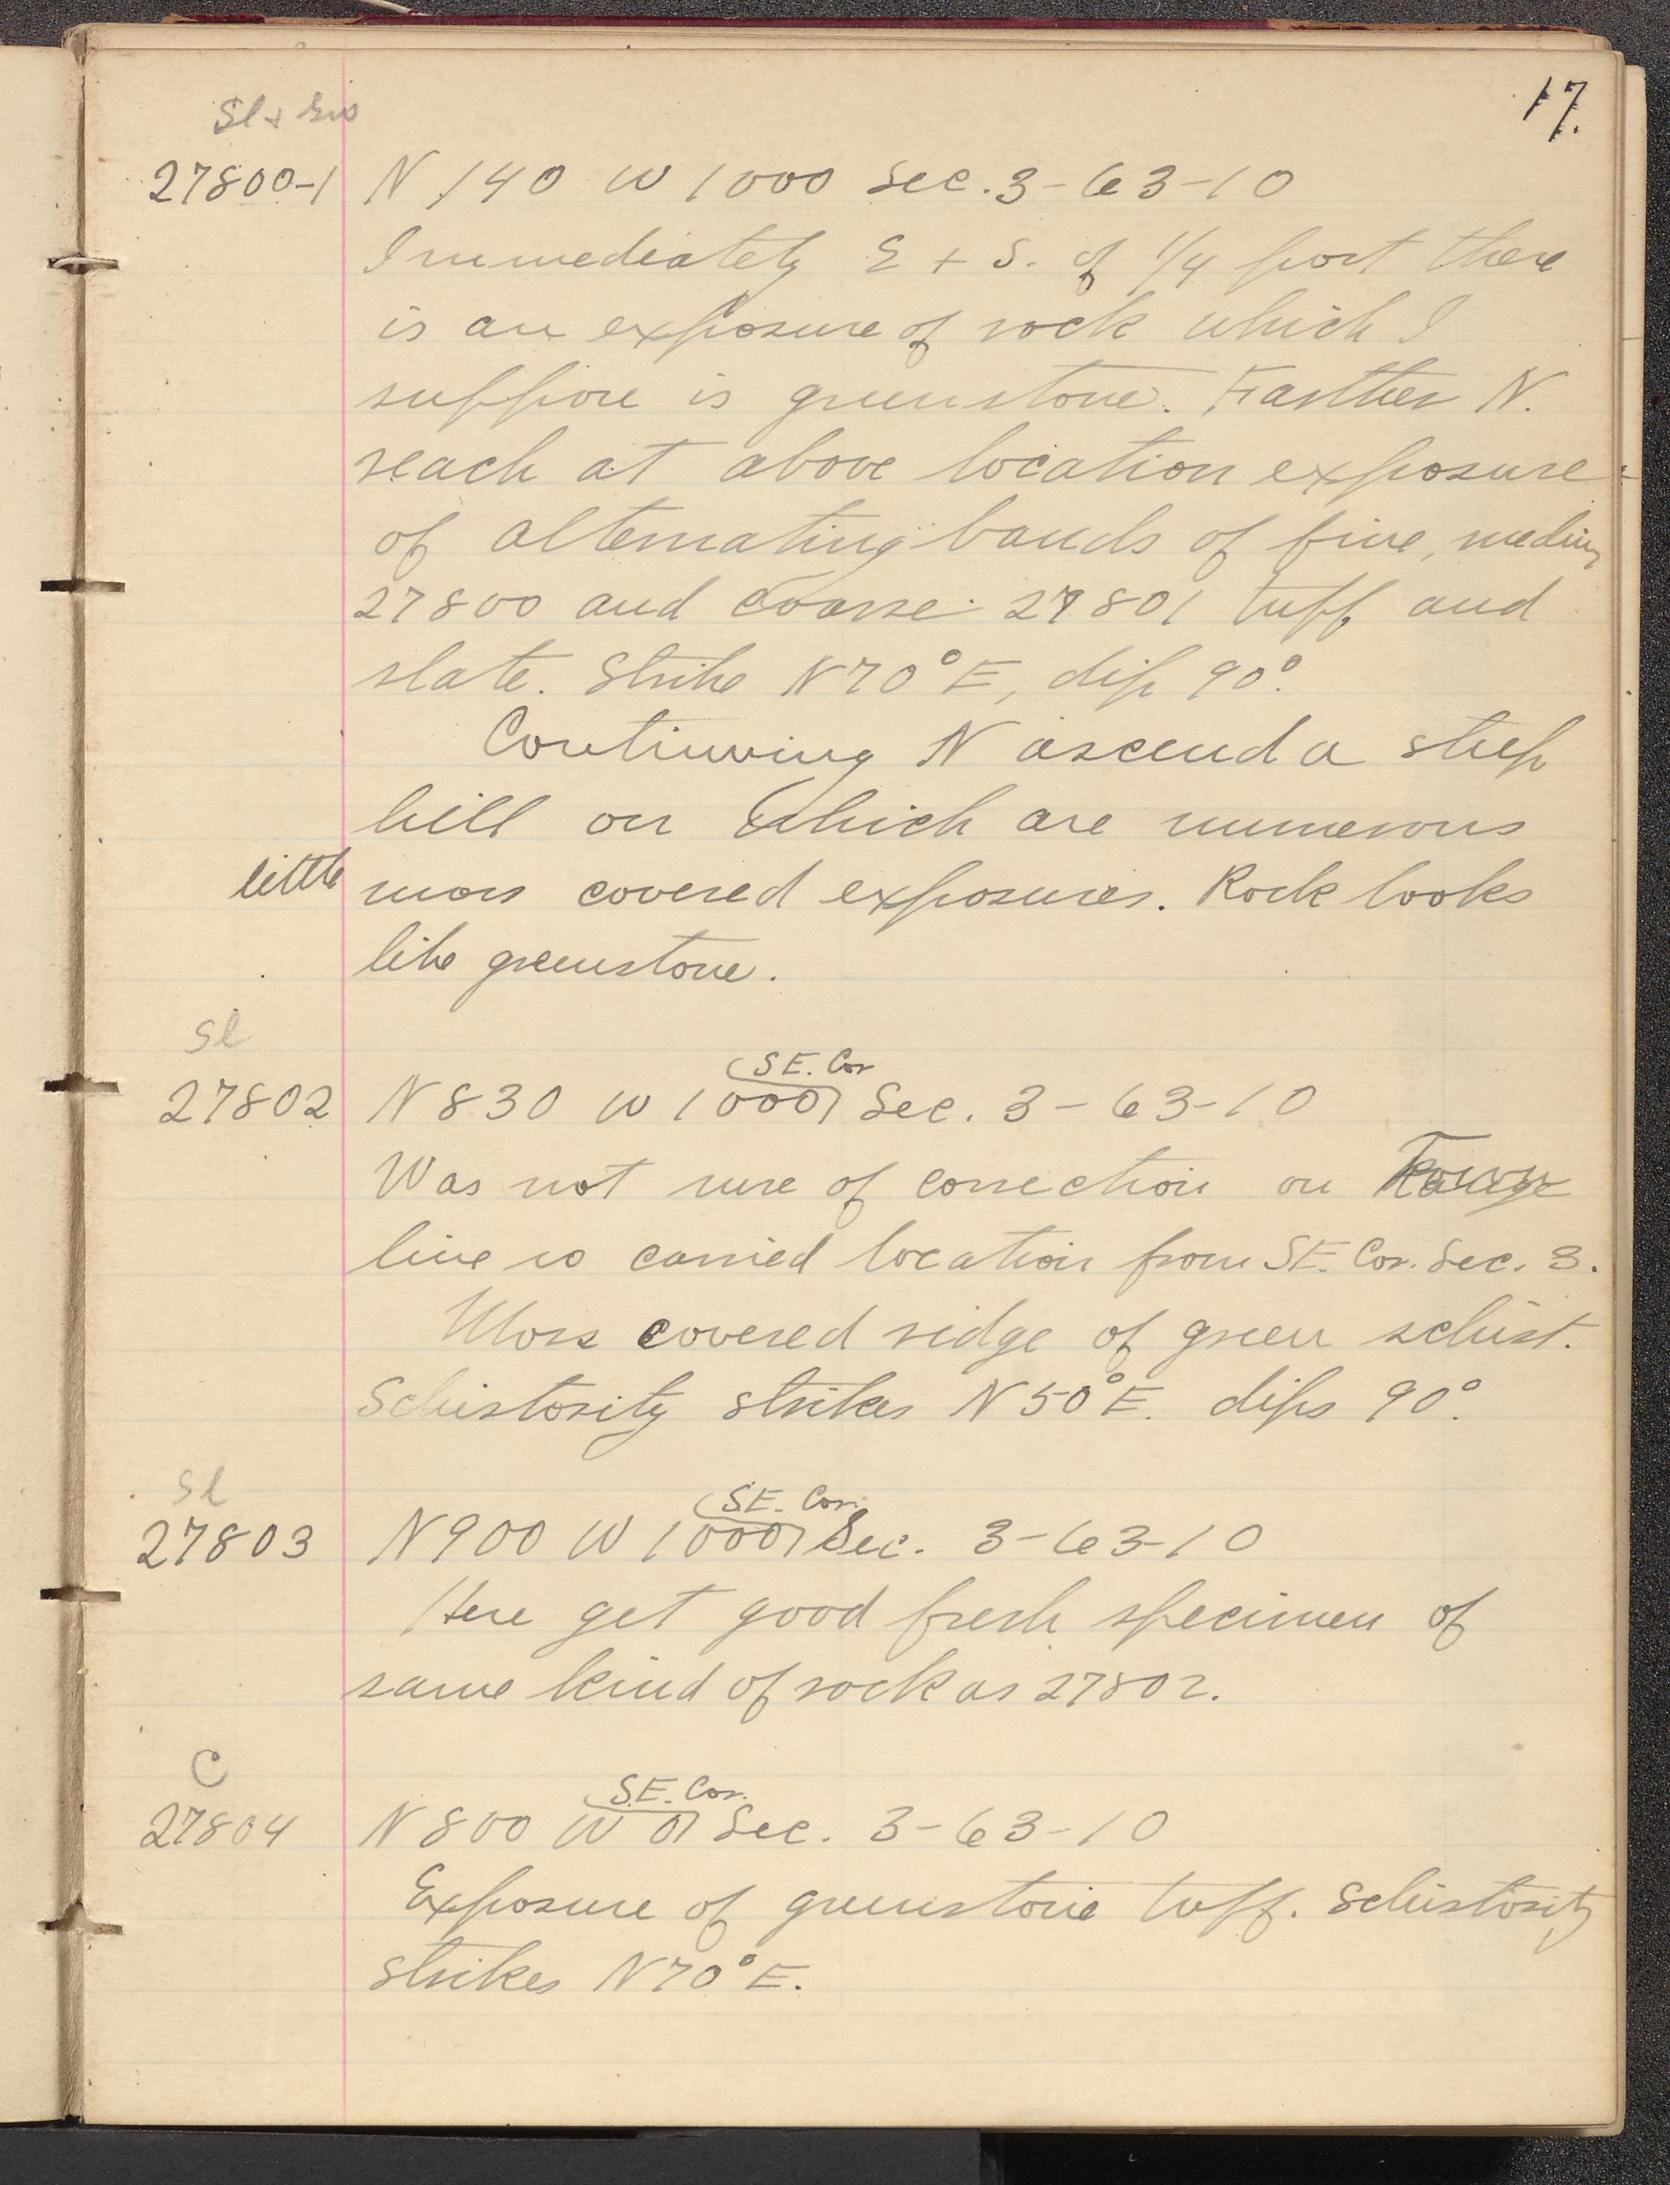 17.
Sl +
27800-1 N 140 W 1000 Sec. 3-63-10
Immediately E + S. of 1/4 post there
is an exposure of rock which I
suppose is greenstone. Farther N.
reach at above location exposure
of alternating bands of fine, medium
27800 and coarse 27801 tuff and
slate. Strike N70°E, dip 90°.
Continuing N ascend a steep
hill on which are numerous
little moss covered exposures. Rock looks
like greenstone.
Sl
(S.E. Cor
27802 N 830 W 1000) Sec. 3-63-10
Was not sure of correction on Town
line so carried location from S.E. Cor. Sec. 3.
Moss covered ridge of green schist.
Schistosity strikes N50°E. dips 90°.
Sl
(S.E. Cor.
27803 N 900 W 1000) Sec. 3-63-10
Here get good fresh specimen of
same kind of rock as 27802.
C
(S.E. Cor.
27804 N 800 W 0) Sec. 3-63-10
Exposure of greenstone tuff. Schistosity
strikes N70°E.